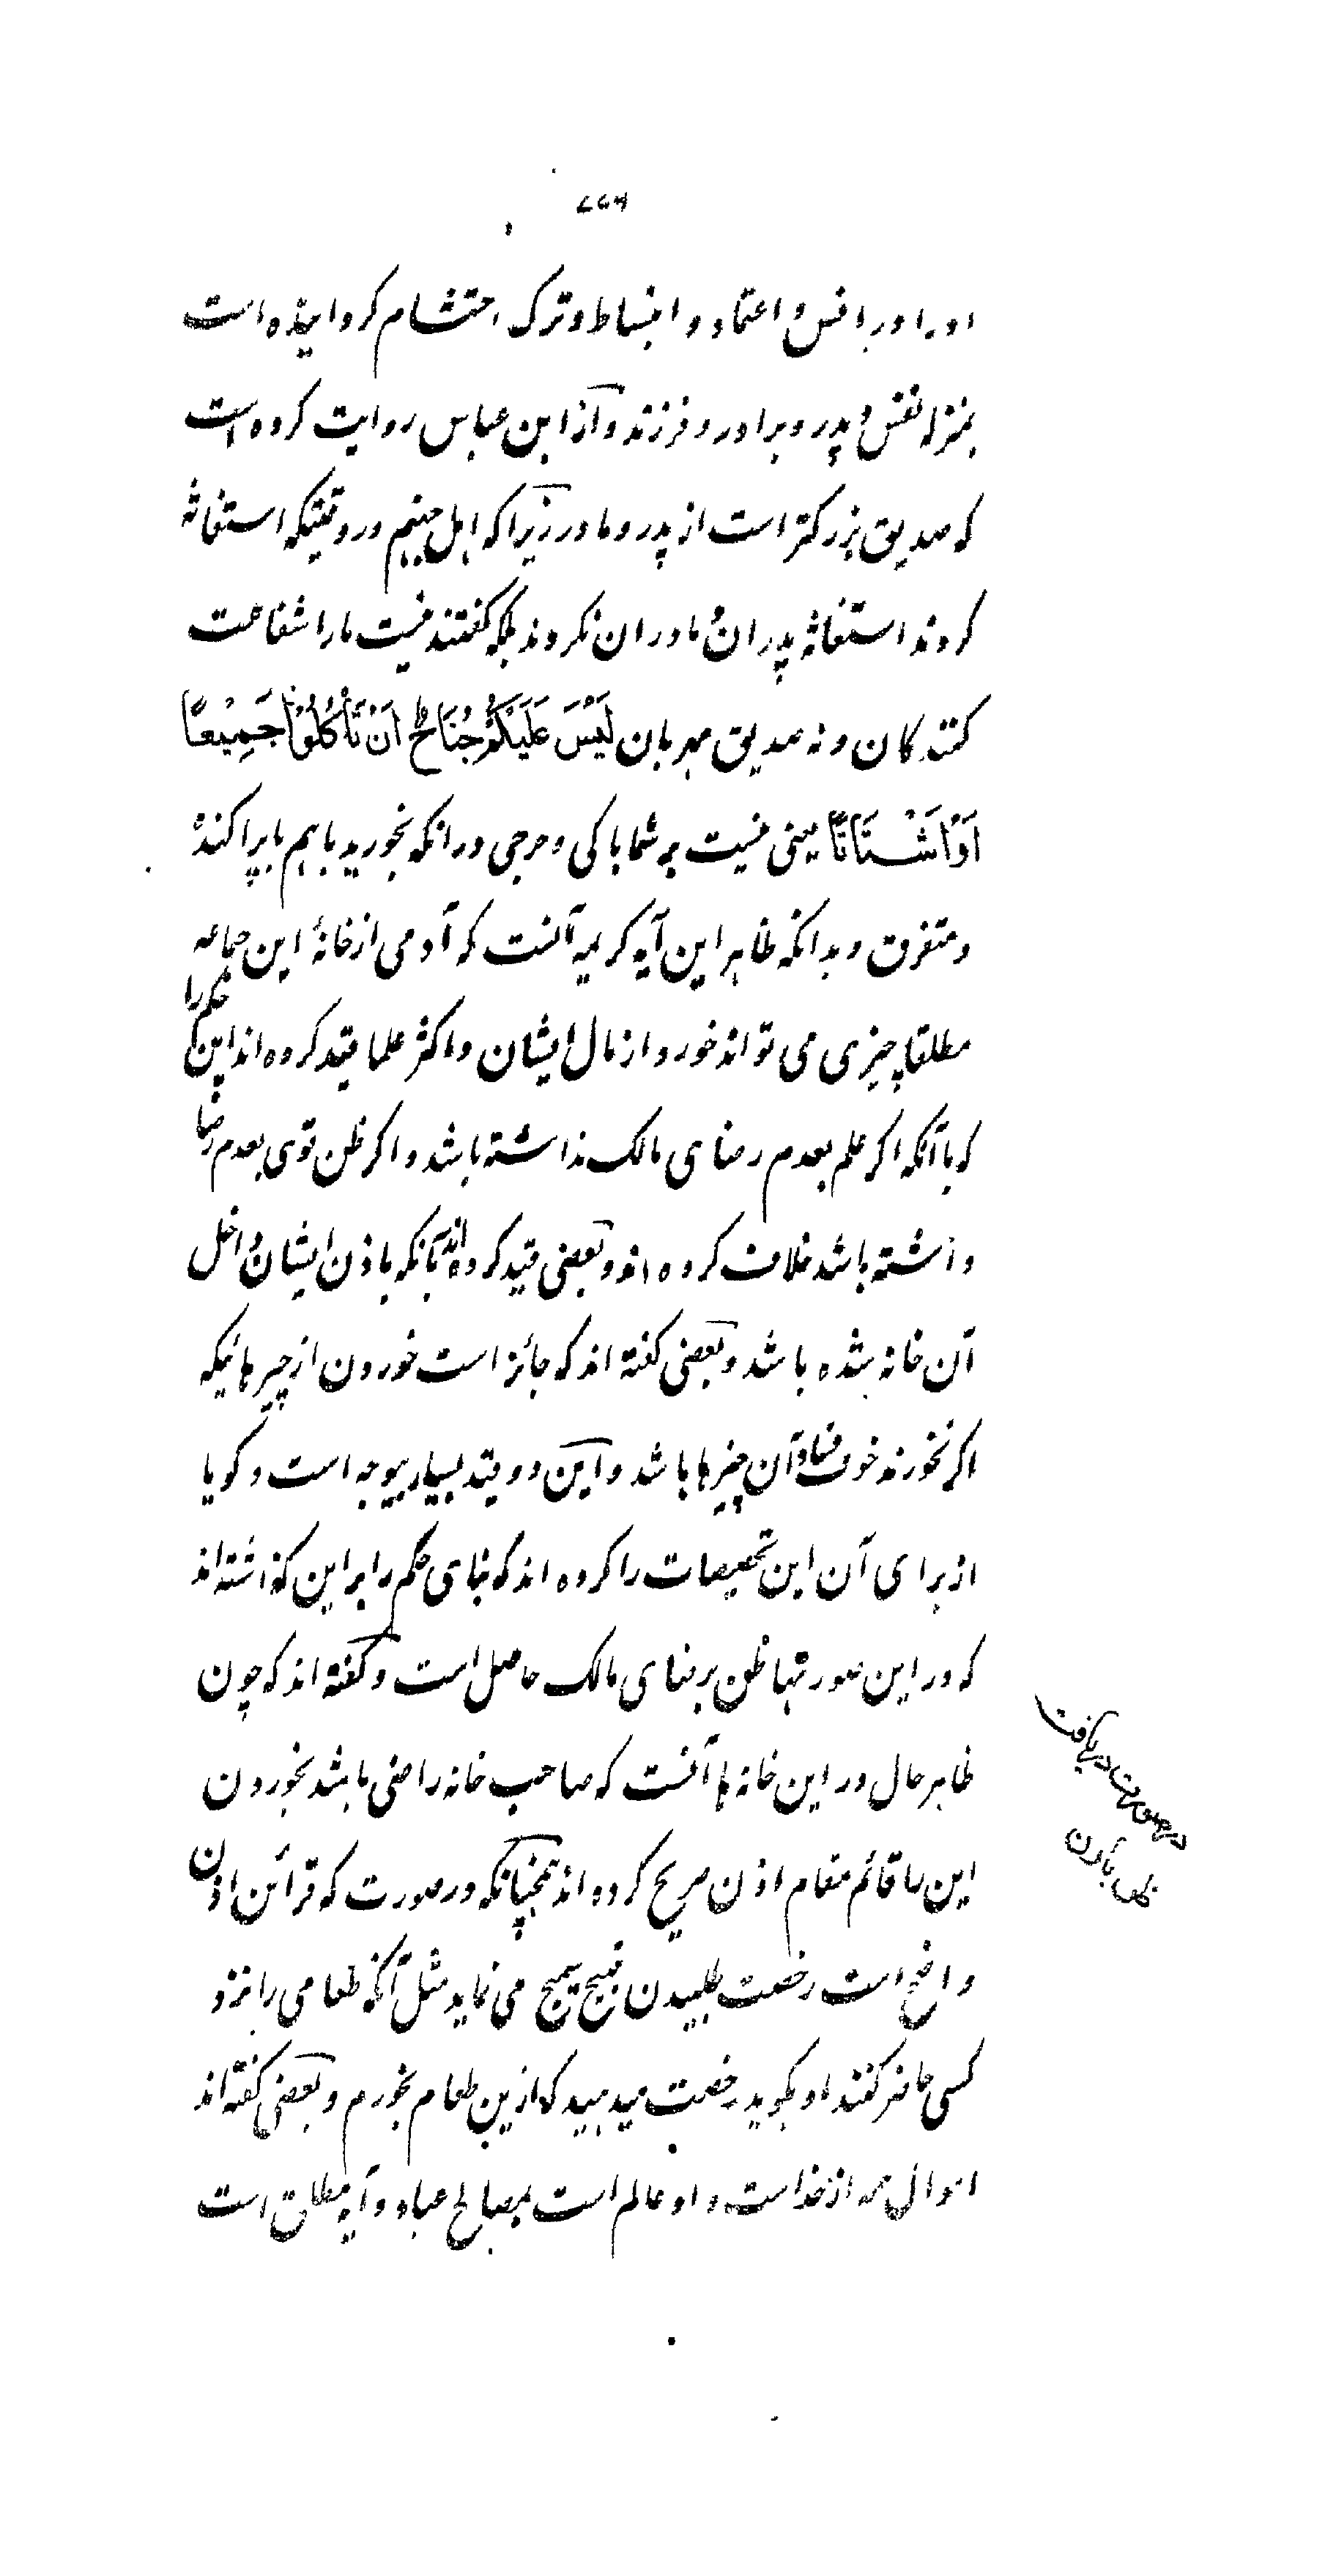 او را در انس و اعتماد و انبساط و ترک احتشام گردانیده است
بمنزله نفس و پدر و برادر و فرزند و از ابن عباس روایت کرده است
که صدیق بزرگتر است از پدر و مادر زیرا که اهل جهنم در وقتیکه استغاثه
کردند استغاثه پدران و مادران نکردند بلکه گفتند نیست ما را شفاعت
کنندگان و نه صدیق مهربان لَیْسَ عَلَیْکُمْ جُنَاحٌ اَنْ تَأْکُلُوْا جَمِیْعًا
اَوْ اَشْتَاتًا یعنی نیست بر شما باکی و حرجی در انکه بخورید باهم یا پراکنده
و متفرق و بدانکه ظاهر این آیه کریمه آنست که آدمی از خانهٔ این جماعه
مطلقا چیزی می تواند خورد و از مال ایشان و اکثر علما قید کرده اند این حکم را
که باآنکه اگر علم بعدم رضای مالک نداشته باشد و اگر ظن قوی بعدم رضا
داشته باشد خلاف کرده اند و بعضی قید کرده اند بآنکه باذن ایشان داخل
آن خانه شده باشد و بعضی گفته اند که جائز است خوردن از چیزهائیکه
اگر نخورند خوف فساد آن چیزها باشد و این دو قید بسیار بیوجه است و گویا
از برای آن این تخصیصات را کرده اند که بنای حکم را بر این گذاشته اند
که در این صورتها ظن برضای مالک حاصل است و گفته اند که چون
ظاهر حال در این خانه ها آنست که صاحب خانه راضی باشد بخوردن
این را قائم مقام اذن صریح کرده اند همچنانکه در صورت که قرائن اذن
واضح است رخصت طلبیدن قبیح می نماید مثل آنکه طعامی را نزد
کسی حاضر کنند او بگوید رخصت میدهید که ازین طعام بخورم و بعضی گفته اند
اموال همه از خداست و او عالم است بمصالح عباد و آیه مطلق است